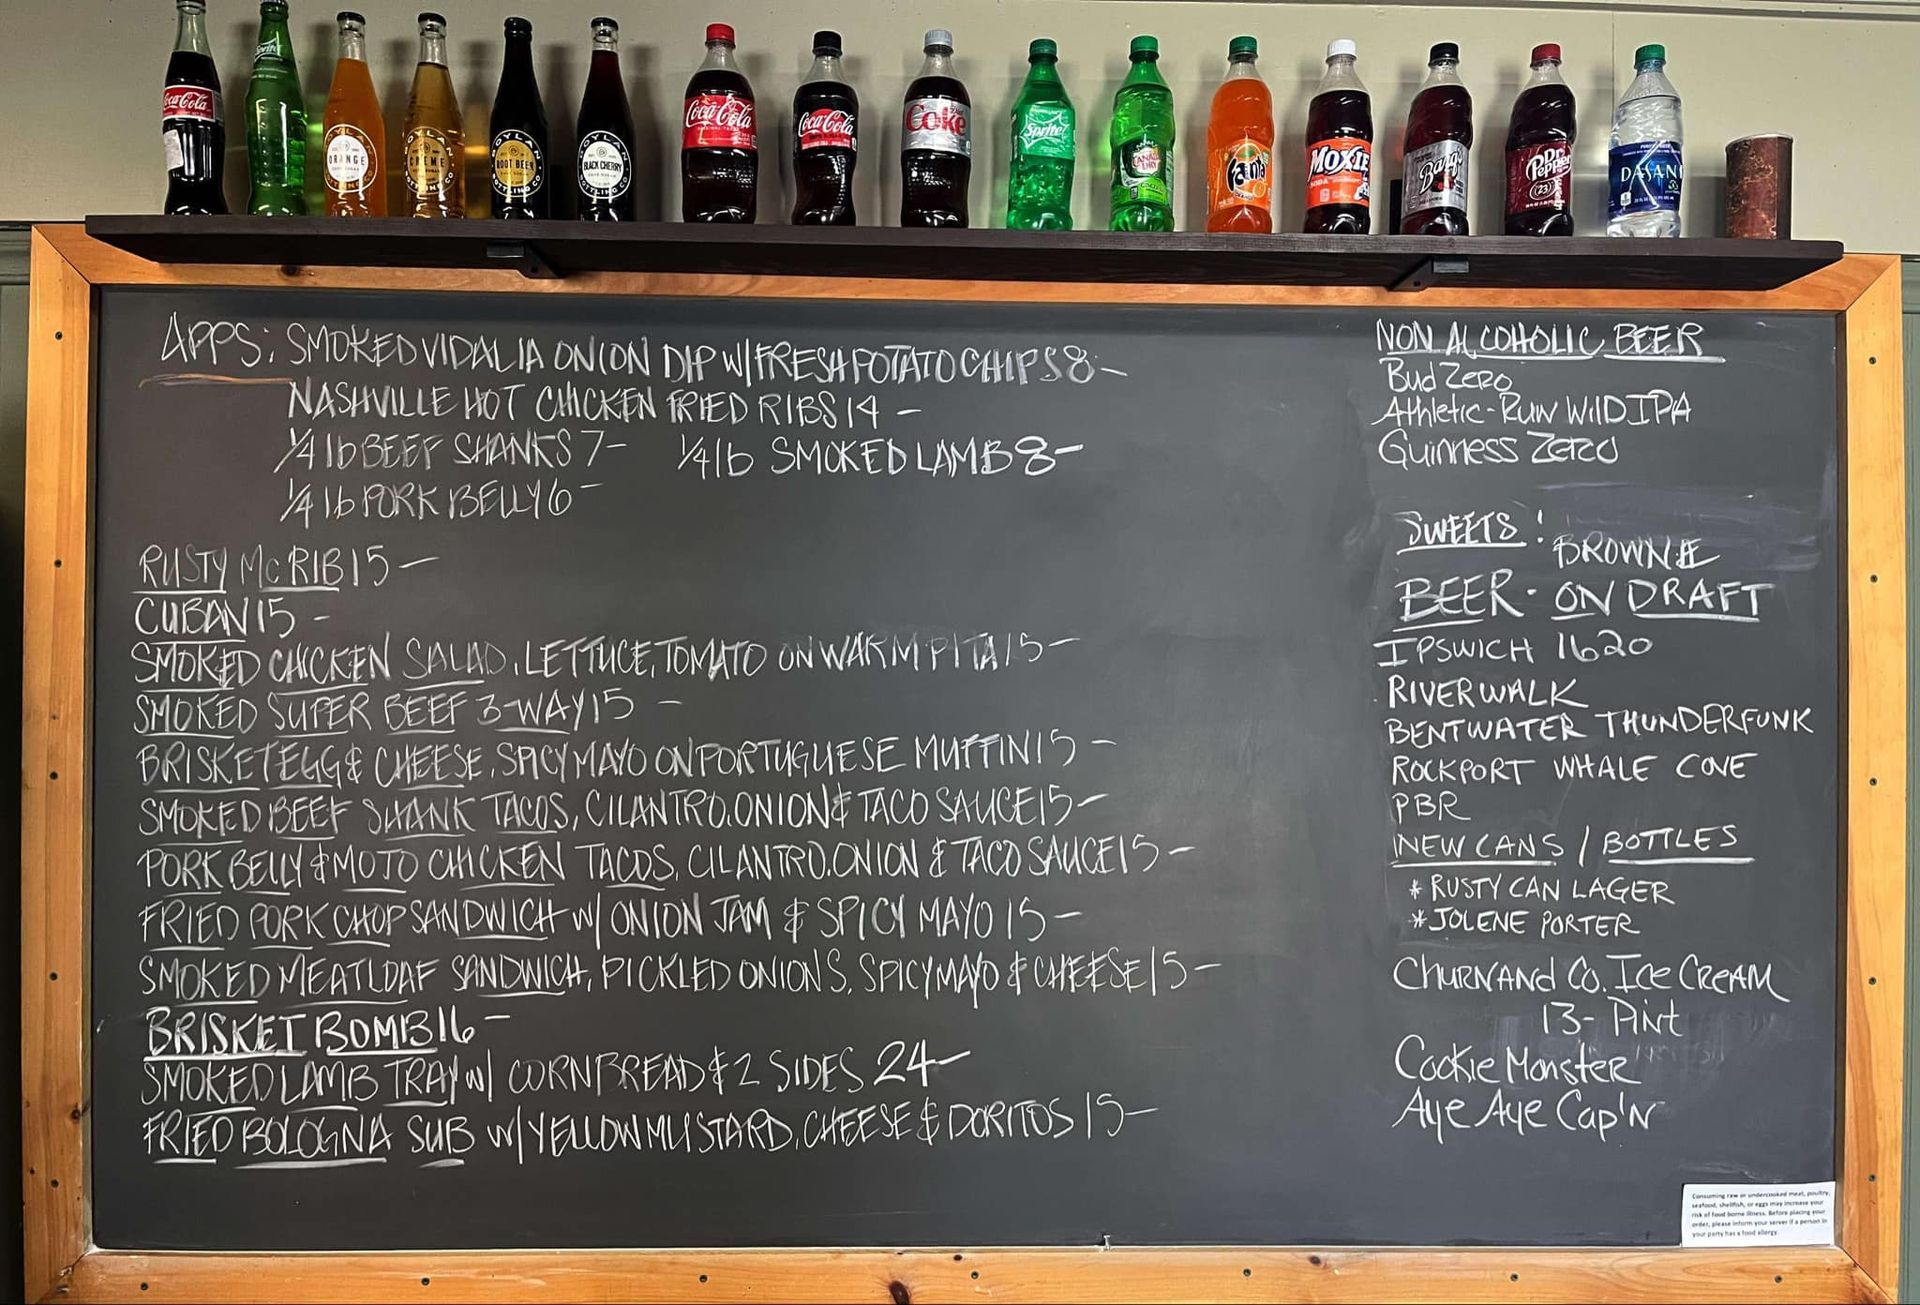 Coca-Cola
Sprite
BOYLAN ORANGE BOTTLING CO
BOYLAN CREME BOTTLING CO
BOYLAN ROOT BEER BOTTLING CO
BOYLAN BLACK CHERRY BOTTLING CO
Coca-Cola
Coca-Cola
Diet Coke
Sprite
CANADA DRY
Fanta
MOXIE
SODA
Barq's
Dr Pepper
23
DASANI
APPS: SMOKED VIDALIA ONION DIP W/FRESH POTATO CHIPS 8-
NASHVILLE HOT CHICKEN FRIED RIBS 14 -
1/4 lb BEEF SHANKS 7- 1/4 lb SMOKED LAMB 8-
1/4 lb PORK BELLY 6-
RUSTY McRIB 15-
CUBAN 15-
SMOKED CHICKEN SALAD, LETTUCE, TOMATO ON WARM PITA 15-
SMOKED SUPER BEEF 3-WAY 15 -
BRISKET EGG & CHEESE, SPICY MAYO ON PORTUGUESE MUFFIN 15 -
SMOKED BEEF SHANK TACOS, CILANTRO, ONION & TACO SAUCE 15-
PORK BELLY & MOJO CHICKEN TACOS, CILANTRO, ONION & TACO SAUCE 15-
FRIED PORK CHOP SANDWICH W/ ONION JAM & SPICY MAYO 15-
SMOKED MEATLOAF SANDWICH, PICKLED ONIONS, SPICY MAYO & CHEESE 15-
BRISKET BOMB 16-
SMOKED LAMB TRAY W/ CORNBREAD & 2 SIDES 24-
FRIED BOLOGNA SUB W/ YELLOW MUSTARD, CHEESE & DORITOS 15-
NON ALCOHOLIC BEER
Bud Zero
Athletic-Run Wild IPA
Guinness Zero
SWEETS:
BROWNIE
BEER - ON DRAFT
IPSWICH 1620
RIVERWALK
BENTWATER THUNDERFUNK
ROCKPORT WHALE COVE
PBR
NEW CANS / BOTTLES
* RUSTY CAN LAGER
* JOLENE PORTER
Churn And Co. Ice Cream
13- Pint
Cookie Monster
Aye Aye Cap'N
Consuming raw or undercooked meat, poultry,
seafood, shellfish, or eggs may increase your
risk of food borne illness. Before placing your
order, please inform your server if a person in
your party has a food allergy.